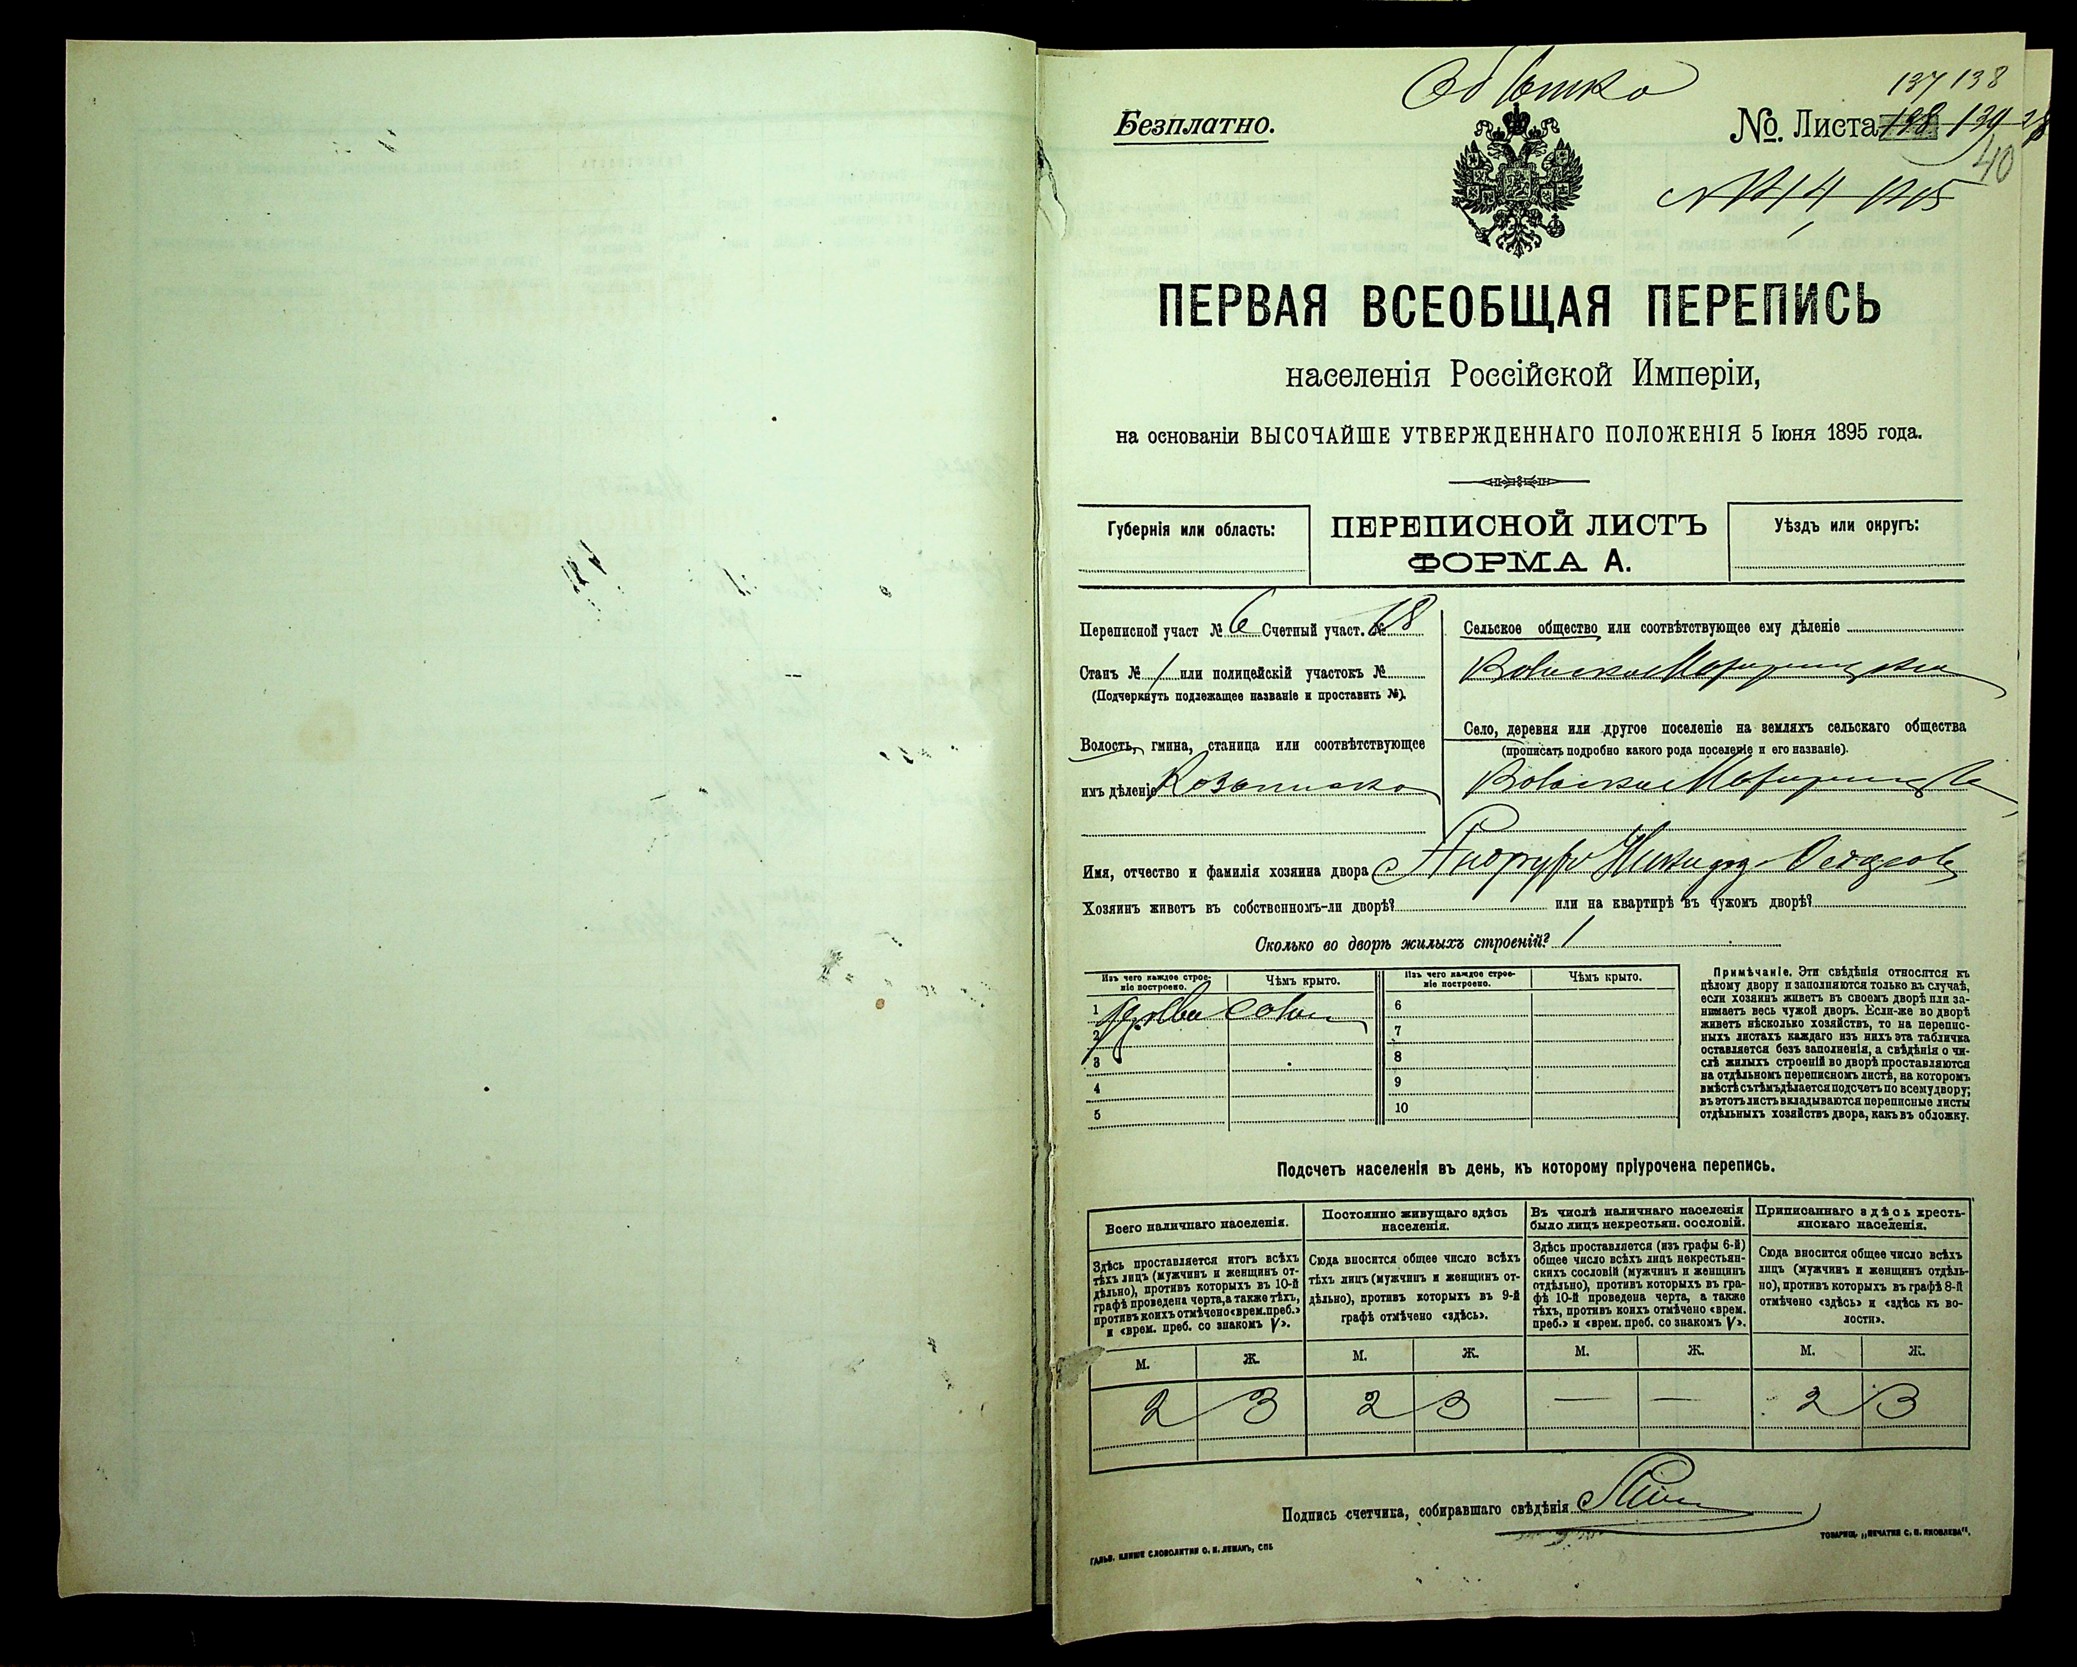 137 138
Безплатно.
№ Листа
40
ПЕРВАЯ ВСЕОБЩАЯ ПЕРЕПИСЬ
населенія Россійской Имперіи,
на основаніи ВЫСОЧАЙШЕ УТВЕРЖДЕННАГО ПОЛОЖЕНІЯ 5 Іюня 1895 года.
Губернія или область:
ПЕРЕПИСНОЙ ЛИСТЪ
ФОРМА А.
Уѣздъ или округъ:
Переписной участ № 6 Счетный участ. № 18
Станъ № 1 или полицейскій участокъ №
(Подчеркнуть подлежащее названіе и проставить №).
Волость, гмина, станица или соотвѣтствующее
имъ дѣленіе
Сельское общество или соотвѣтствующее ему дѣленіе
Село, деревня или другое поселеніе на земляхъ сельскаго общества
(прописать подробно какого рода поселеніе и его названіе).
Имя, отчество и фамилія хозяина двора
Хозяинъ живетъ въ собственномъ-ли дворѣ? или на квартирѣ въ чужомъ дворѣ?
Сколько во дворѣ жилыхъ строеній? 1
Изъ чего каждое строе-
ніе построено.
Чѣмъ крыто.
Изъ чего каждое строе-
ніе построено.
Чѣмъ крыто.
1
2
3
4
5
6
7
8
9
10
Примѣчаніе. Эти свѣдѣнія относятся къ
цѣлому двору и заполняются только въ случаѣ,
если хозяинъ живетъ въ своемъ дворѣ или за-
нимаетъ весь чужой дворъ. Если-же во дворѣ
живетъ нѣсколько хозяйствъ, то на перепис-
ныхъ листахъ каждаго изъ нихъ эта табличка
оставляется безъ заполненія, а свѣдѣнія о чи-
слѣ жилыхъ строеній во дворѣ проставляются
на отдѣльномъ переписномъ листѣ, на которомъ
вмѣстѣ съ тѣмъ дѣлается подсчетъ по всему двору;
въ этотъ листъ вкладываются переписные листы
отдѣльныхъ хозяйствъ двора, какъ въ обложку.
Подсчетъ населенія въ день, къ которому пріурочена перепись.
Всего наличнаго населенія.
Здѣсь проставляется итогъ всѣхъ
тѣхъ лицъ (мужчинъ и женщинъ от-
дѣльно), противъ которыхъ въ 10-й
графѣ проведена черта, а также тѣхъ,
противъ коихъ отмѣчено «врем. преб.»
и «врем. преб. со знакомъ V».
Постоянно живущаго здѣсь
населенія.
Сюда вносится общее число всѣхъ
тѣхъ лицъ (мужчинъ и женщинъ от-
дѣльно), противъ которыхъ въ 9-й
графѣ отмѣчено «здѣсь».
Въ числѣ наличнаго населенія
было лицъ некрестьян. сословій.
Здѣсь проставляется (изъ графы 6-й)
общее число всѣхъ лицъ некрестьян-
скихъ сословій (мужчинъ и женщинъ
отдѣльно), противъ которыхъ въ гра-
фѣ 10-й проведена черта, а также
тѣхъ, противъ коихъ отмѣчено «врем.
преб.» и «врем. преб. со знакомъ V».
Приписаннаго здѣсь кресть-
янскаго населенія.
Сюда вносится общее число всѣхъ
лицъ (мужчинъ и женщинъ отдѣль-
но), противъ которыхъ въ графѣ 8-й
отмѣчено «здѣсь» и «здѣсь къ во-
лости».
М. Ж. М. Ж. М. Ж. М. Ж.
2 3 2 3 — — 2 3
Подпись счетчика, собиравшаго свѣдѣнія
ГАЛЬВ. КЛИШЕ СЛОВОЛИТНИ О. И. ЛЕМАНЪ, СПБ
ТОВАРИЩ. „ПЕЧАТНЯ С. П. ЯКОВЛЕВА".